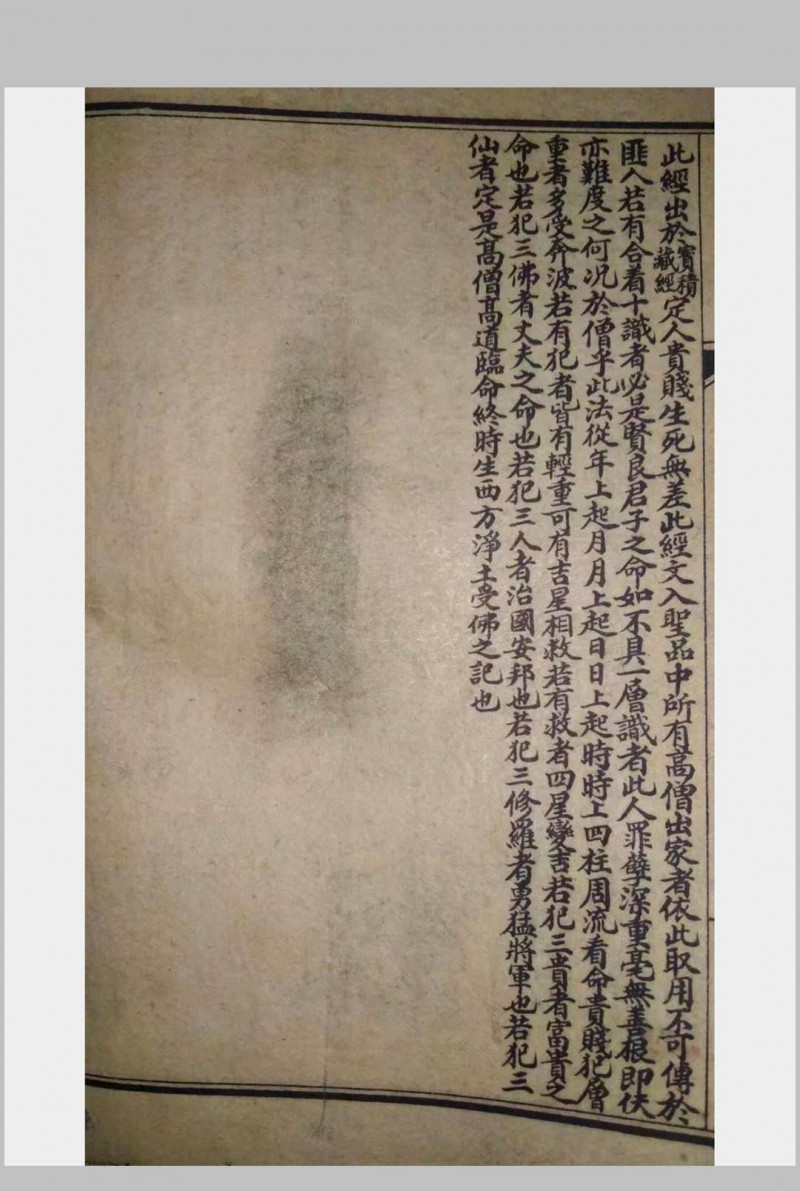 此經出於寳積藏經定人貴賤生死無差此經文入聖品中所有高僧出家者依此取用不可傳於
匪人若有合着十識者必是賢良君子之命如不具一層識者此人罪孽深重毫無善根即伕
亦難度之何况於僧乎此法從年上起月月上起日日上起時時上四柱周流看命貴賤犯層
重者多受奔波若有犯者皆有輕重可有吉星相救若有救者四星變吉若犯三貴者富貴之
命也若犯三佛者丈夫之命也若犯三人者治國安邦也若犯三修羅者勇猛將軍也若犯三
仙者定是高僧高道臨命終時生西方淨土受佛之記也